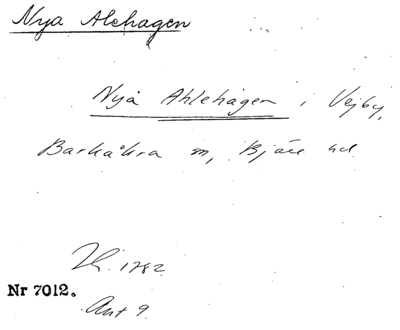 Nya Alehagen
Nya Ahlehagen i Vejby,
Barkåkra sn, Bjäre hd
Jk. 1782
Nr 7012.
Akt 9.